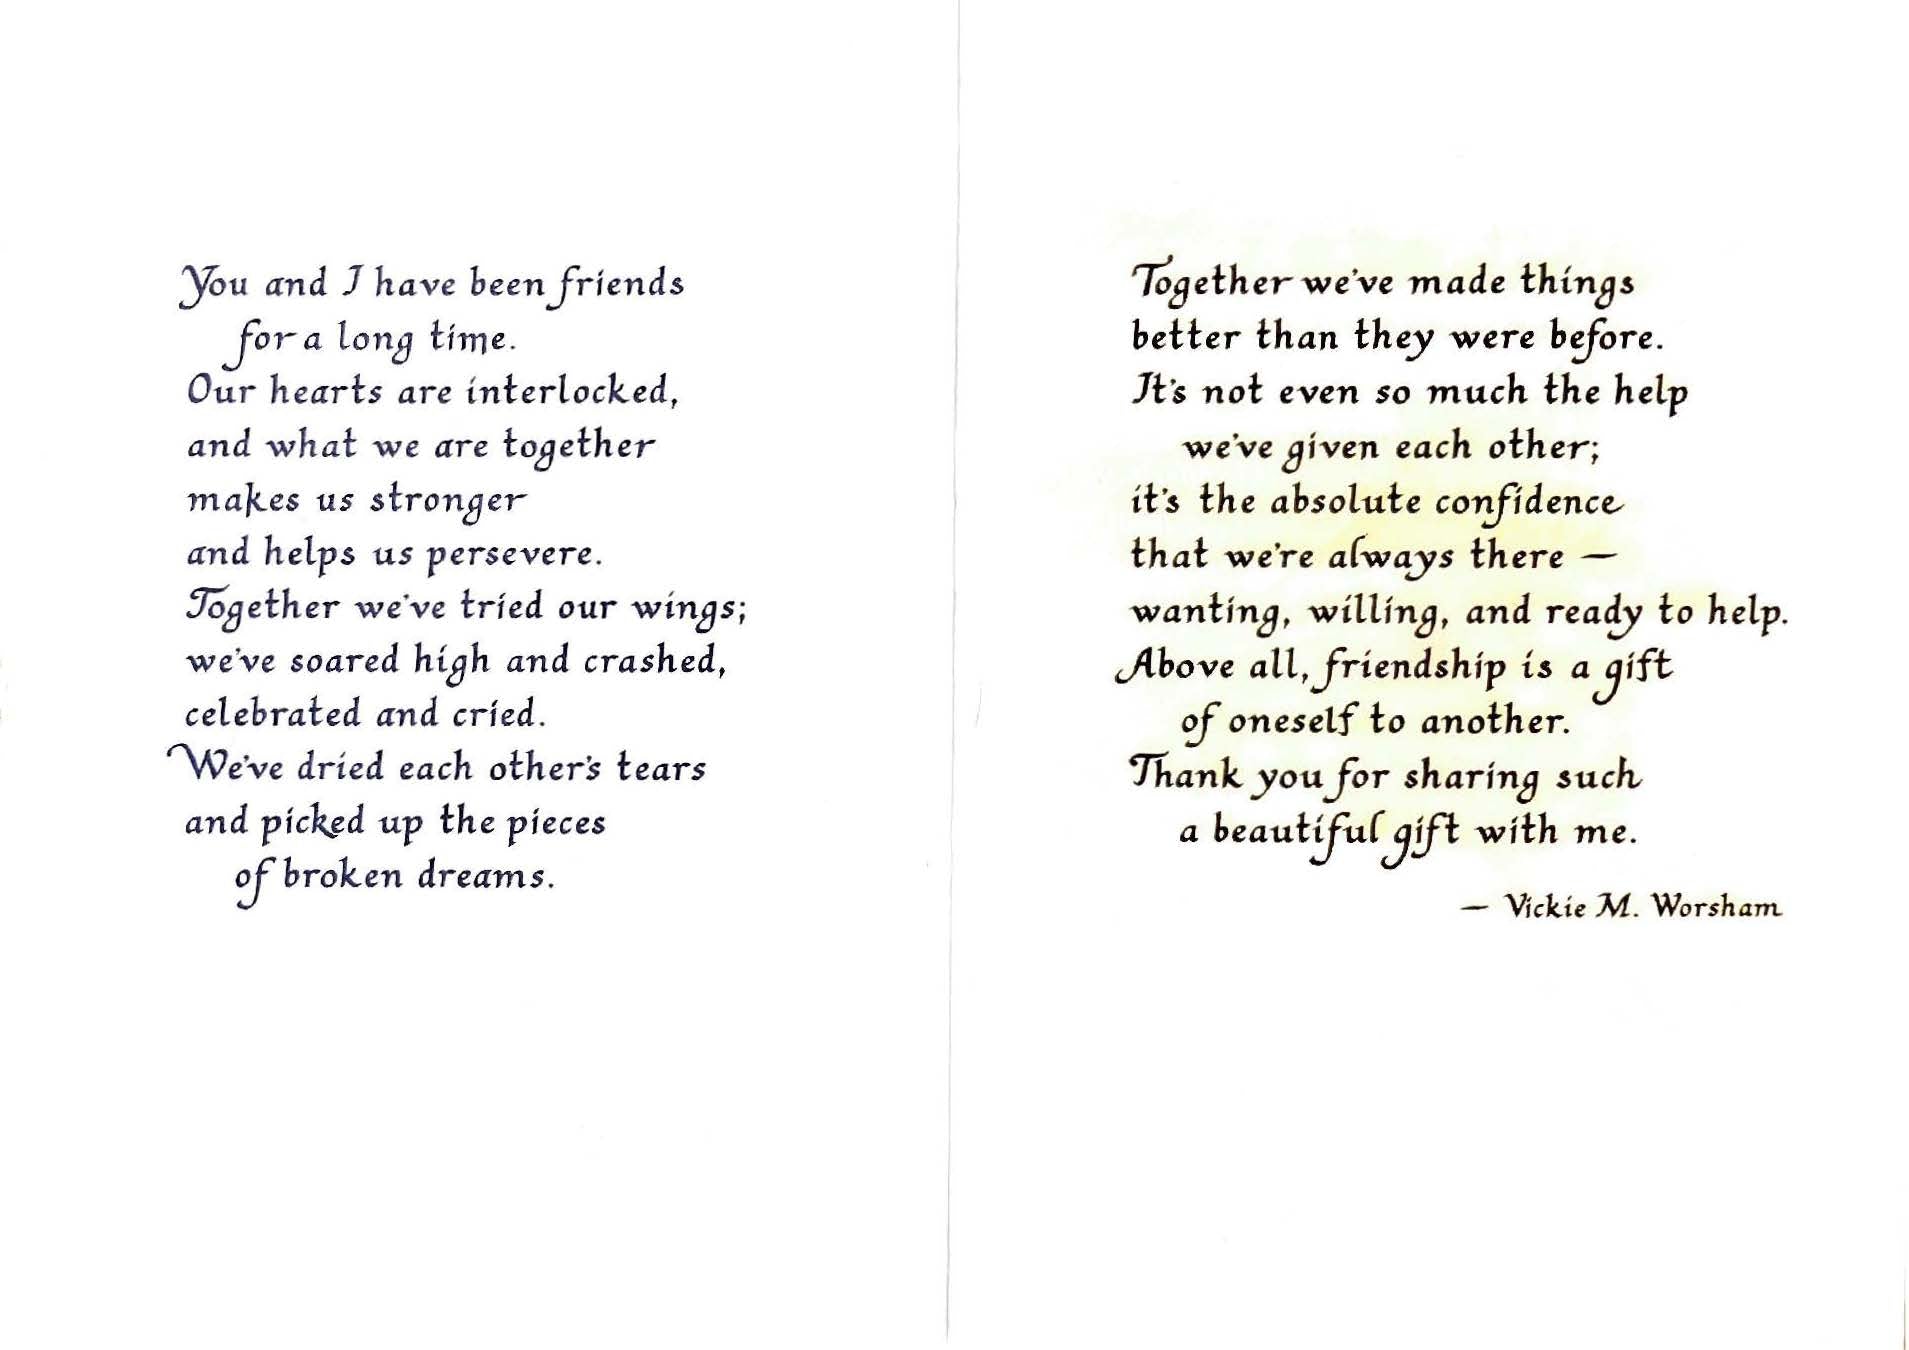 You and I have been friends
for a long time.
Our hearts are interlocked,
and what we are together
makes us stronger
and helps us persevere.
Together we've tried our wings;
we've soared high and crashed,
celebrated and cried.
We've dried each other's tears
and picked up the pieces
of broken dreams.
Together we've made things
better than they were before.
It's not even so much the help
we've given each other;
it's the absolute confidence
that we're always there —
wanting, willing, and ready to help.
Above all, friendship is a gift
of oneself to another.
Thank you for sharing such
a beautiful gift with me.
— Vickie M. Worsham